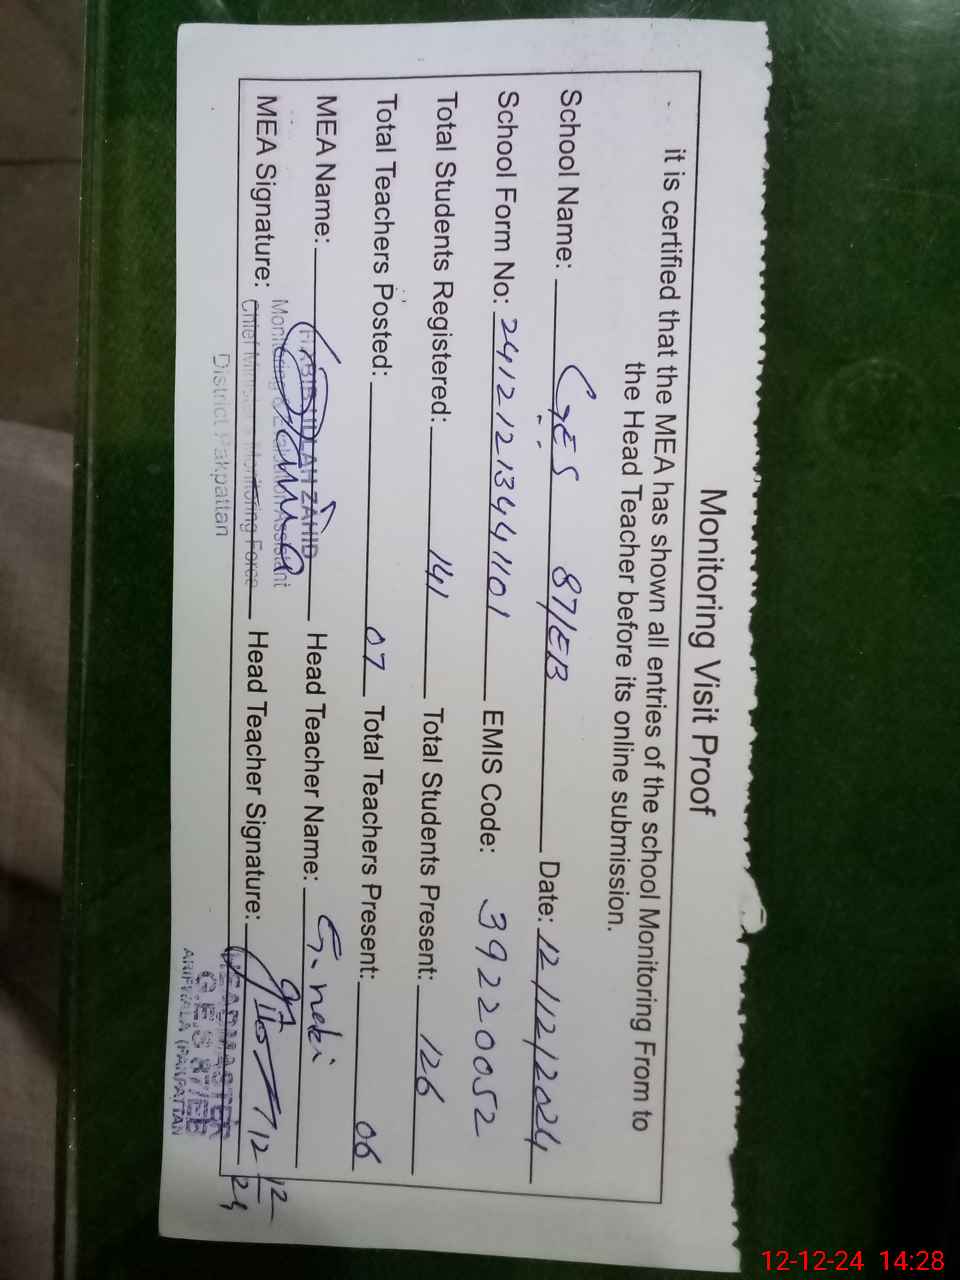 Monitoring Visit Proof
it is certified that the MEA has shown all entries of the school Monitoring From to
the Head Teacher before its online submission.
School Name: GES 87/EB Date: 12/12/2024
School Form No: 24121213441101 EMIS Code: 39220052
Total Students Registered: 141 Total Students Present: 126
Total Teachers Posted: 07 Total Teachers Present: 06
MEA Name: ZAHID Head Teacher Name: G. nabi
MEA Signature: Head Teacher Signature: 12 12/24
Monitoring & Evaluation Assistant
Chief Minister's Monitoring Force
District Pakpattan
HEADMASTER
G.E/S 87/EB
ARIFWALA (PAKPATTAN
12-12-24 14:28